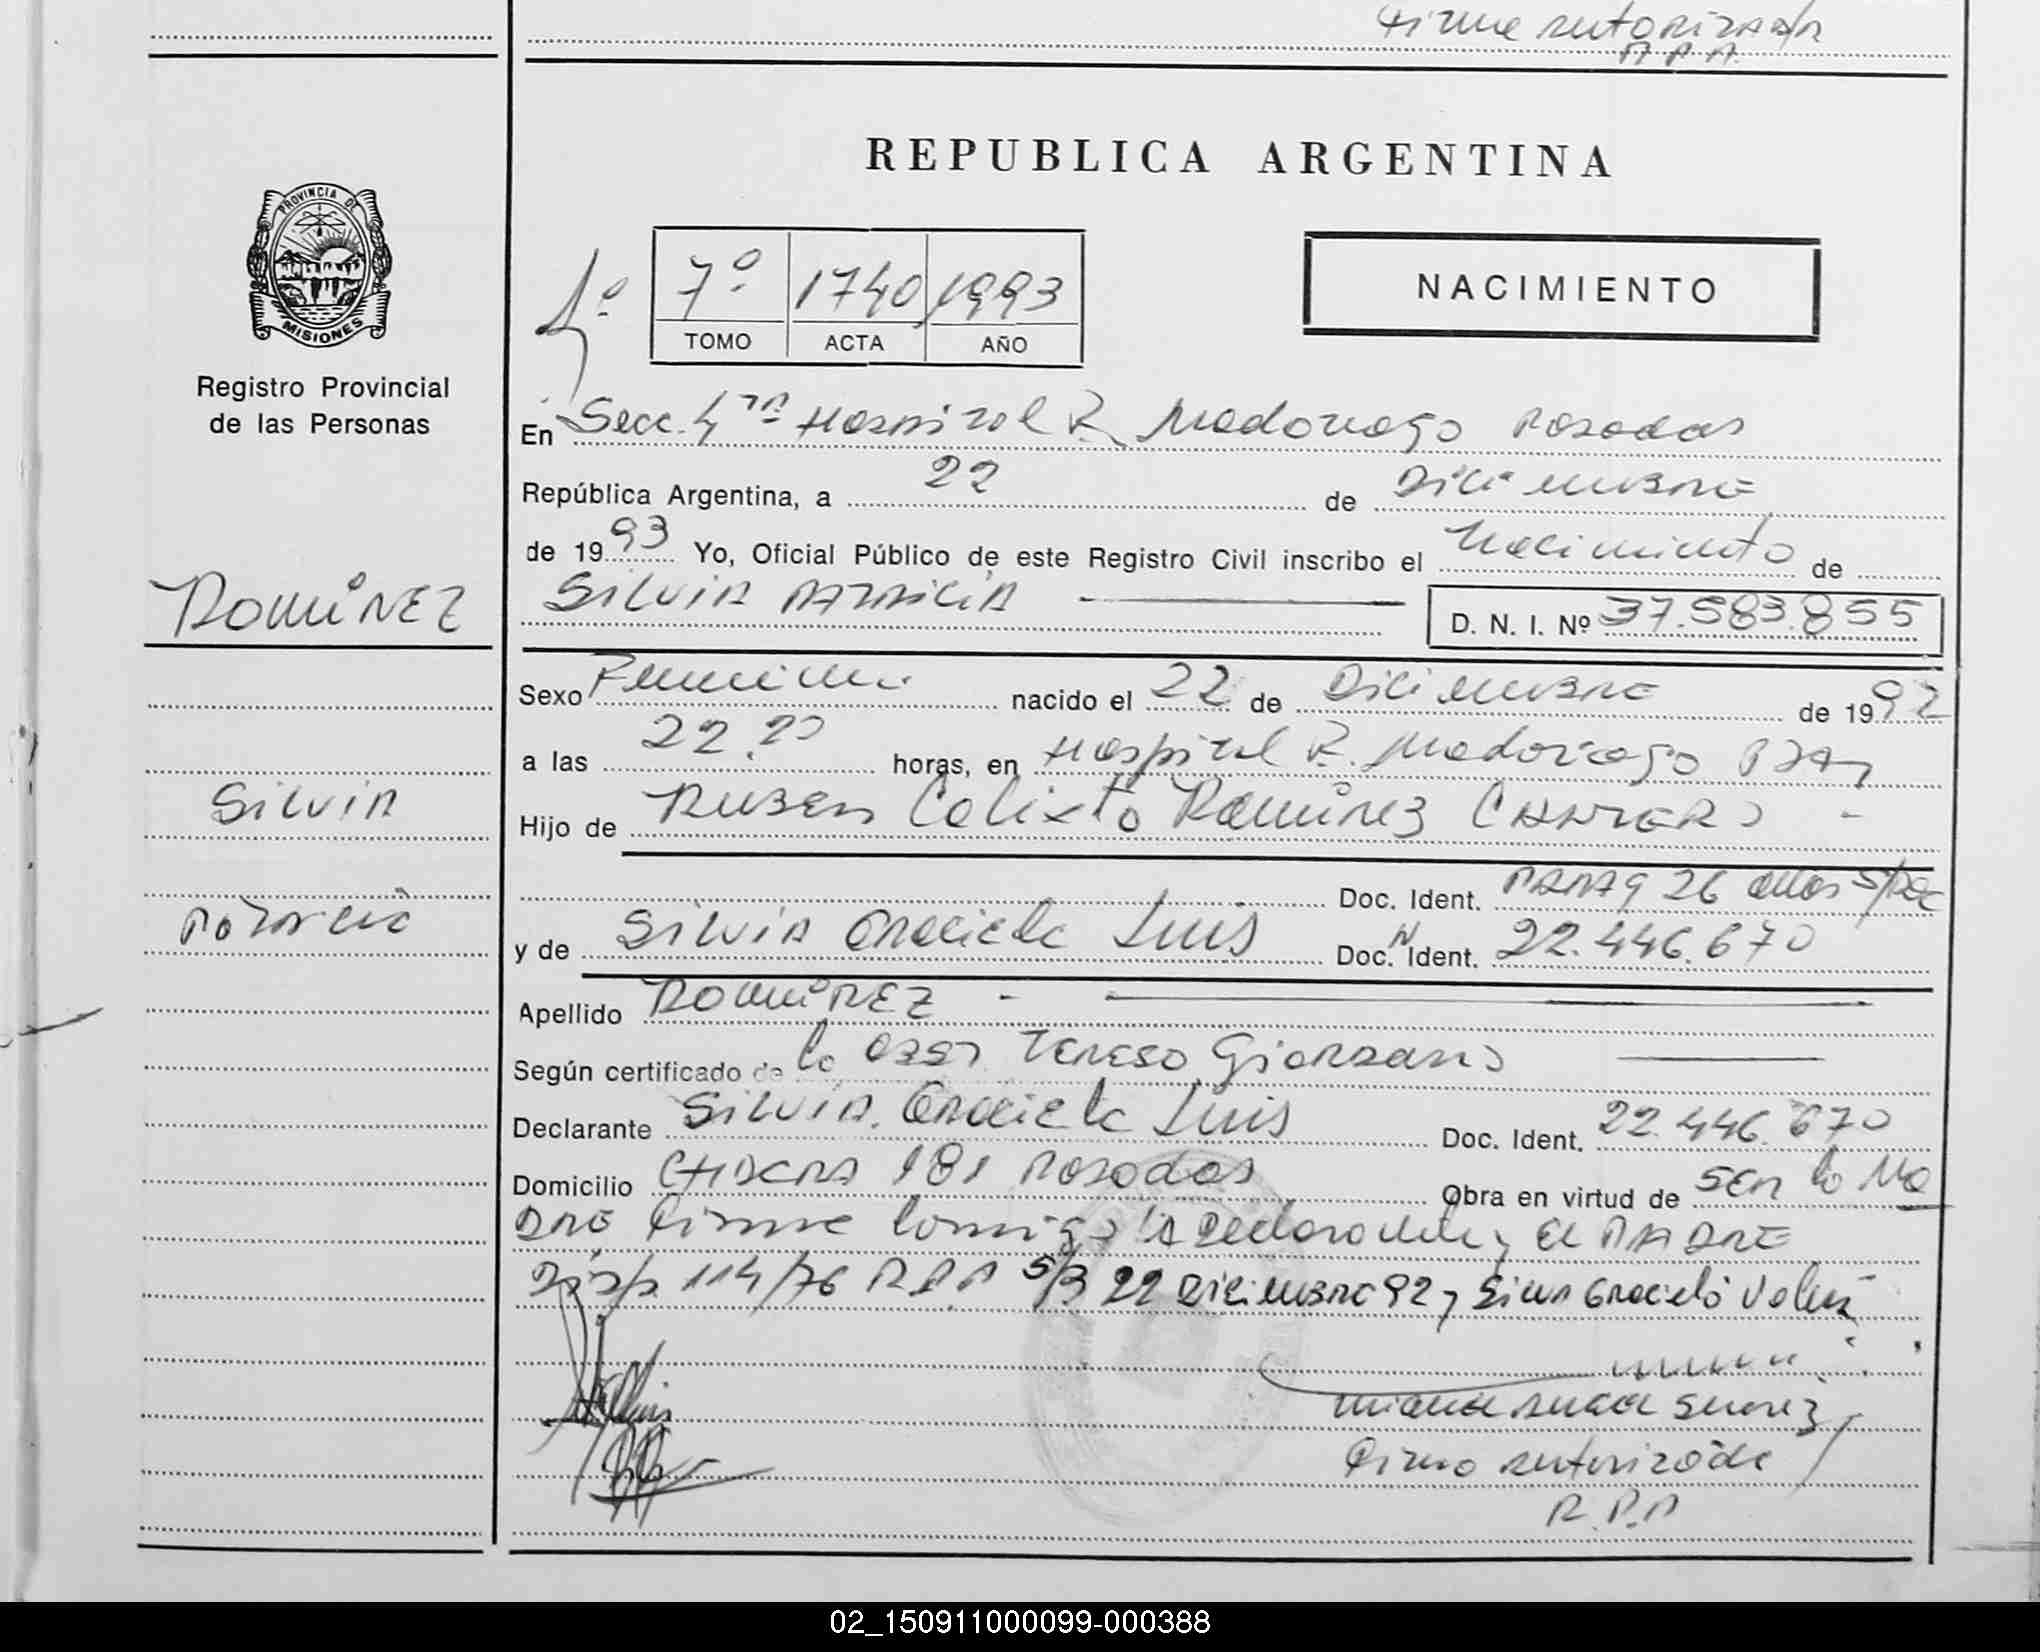 Firma Autorizada
R.P.P.
REPUBLICA ARGENTINA
PROVINCIA DE
MISIONES
Registro Provincial
de las Personas
1º
7º 1740 1993
TOMO ACTA AÑO
NACIMIENTO
En Secc. 4ta Hospital R. Madariaga Posadas
República Argentina, a 22 de Diciembre
de 1993 Yo, Oficial Público de este Registro Civil inscribo el Nacimiento de
Silvia Patricia
D. N. I. Nº 37.583.855
RAMIREZ
Silvia
Patricia
Sexo Femenino nacido el 22 de Diciembre de 1992
a las 22.20 horas, en Hospital R. Madariaga
Hijo de Ruben Calixto Ramirez
Doc. Ident. 26 años S/Doc
y de Silvia Graciela Luis Doc. Ident. 22.446.670
Apellido RAMIREZ
Según certificado de la Obst. Teresa
Declarante Silvia Graciela Luis Doc. Ident. 22.446.670
Domicilio 181 Posadas Obra en virtud de Ser la Ma
dre Firma conmigo la declarante y el PADRE
Disp. 114/76 R.P.P S/B 22 Diciembre 92 y Silvia Graciela Valen
Firma Autorizada
R.P.P
02_150911000099-000388